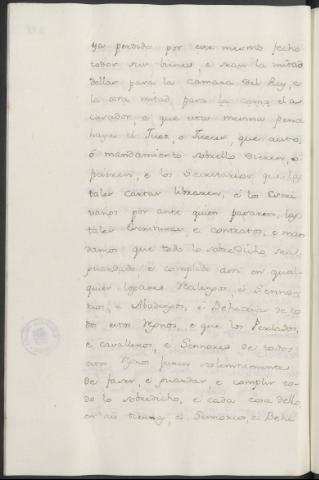 ya perdido por este mismo fecho
todos sus bienes, e sean la mitad
dellos para la Camara del Rey, e
la otra mitad para la
cusador, e que esta mesma pena
haya el Juez, o Juezes, que auto,
ó mandamiento sobrello dieren, o
ficieren, e los Secretarios que las
tales Cartas libraren, é los Escri
vanos por ante quien pasaren las
tales Escrituras, e contratos, e man
damos que todo lo sobredicho sea
guardado, é complido aun en qual-
quier logares Realengos, é Senno-
rios, e Abadengos, é Behetrias de to
dos estos Rynos, e que los Perlados,
e cavalleros, e Sennores de todos
estos Rynos juren solennemente
de facer, e guardar, e complir to-
do lo sobredicho, e cada cosa dello,
en sus tierras, é Sennorios, e Behe